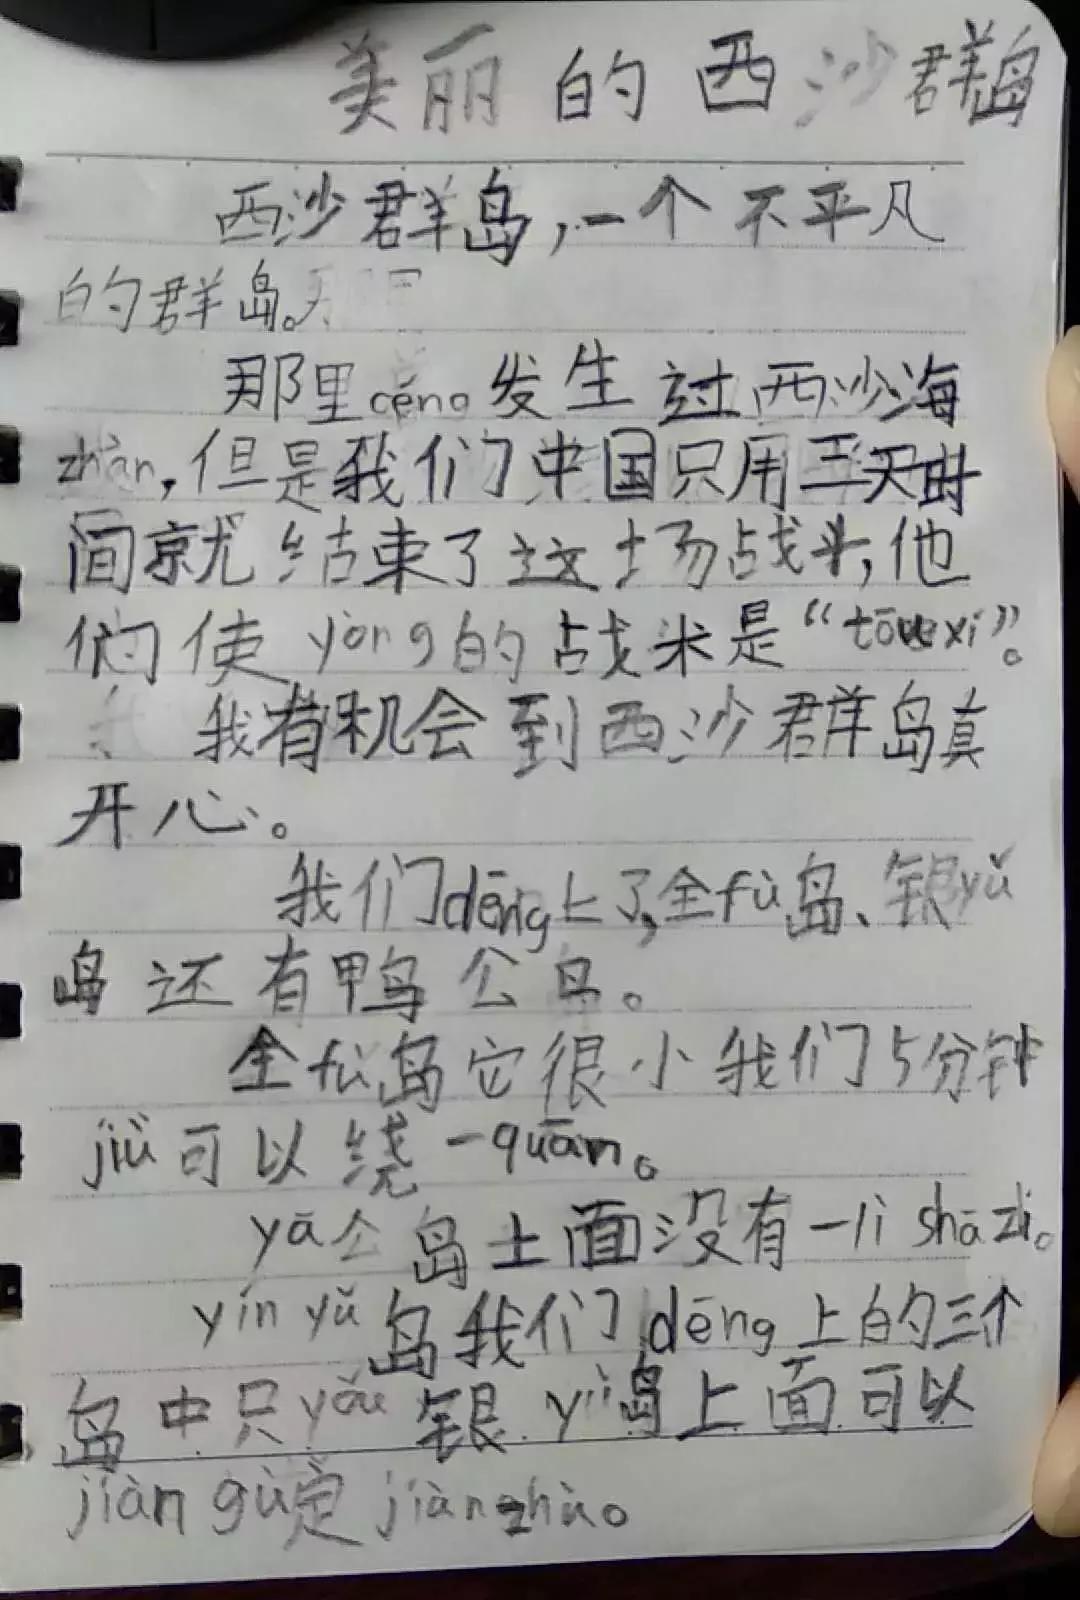 美丽的西沙群岛
西沙群岛,一个不平凡
的群岛。
那里cēng发生过西沙海
zhàn,但是我们中国只用三天时
间就结束了这场战斗,他
们使yòng的战术是“tōu xí”。
我有机会到西沙群岛真
开心。
我们dēng上了,全fù岛、银yǔ
岛还有鸭公岛。
全fù岛它很小我们5分钟
jiù可以绕一quān。
yā公岛上面没有一lì shā zi。
yín yǔ岛我们dēng上的三个
岛中只yǒu银yǔ岛上面可以
jiàn gù定jiànzhù。